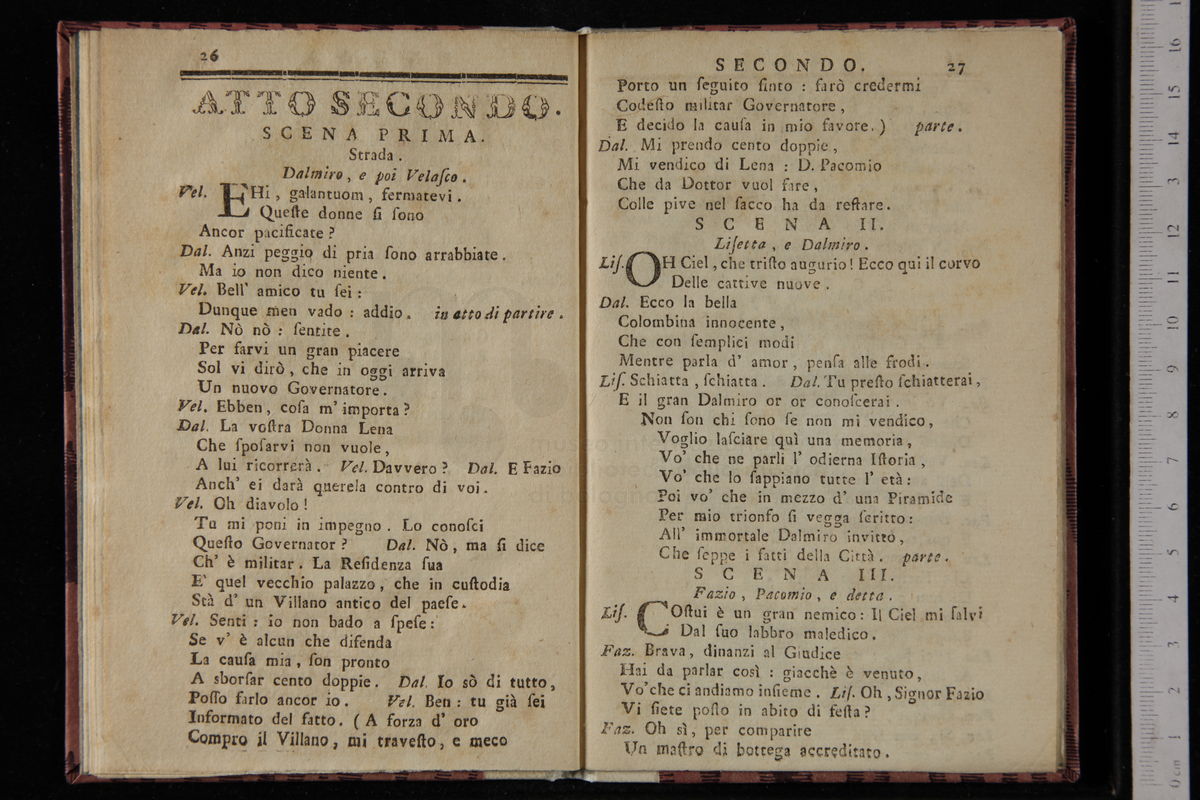 26
ATTO SECONDO.
SCENA PRIMA.
Strada .
Dalmiro , e poi Velaſco .
Vel. EHi , galantuom , fermatevi .
Queſte donne ſi ſono
Ancor pacificate ?
Dal. Anzi peggio di pria ſono arrabbiate .
Ma io non dico niente .
Vel. Bell' amico tu ſei :
Dunque men vado : addio . in atto di partire .
Dal. Nò nò : ſentite .
Per farvi un gran piacere
Sol vi dirò , che in oggi arriva
Un nuovo Governatore .
Vel. Ebben , coſa m' importa ?
Dal. La voſtra Donna Lena
Che ſpoſarvi non vuole ,
A lui ricorrerà . Vel. Davvero ? Dal. E Fazio
Anch' ei darà querela contro di voi .
Vel. Oh diavolo !
Tu mi poni in impegno . Lo conoſci
Queſto Governator ? Dal. Nò , ma ſi dice
Ch' è militar . La Reſidenza ſua
E' quel vecchio palazzo , che in cuſtodia
Stà d' un Villano antico del paeſe .
Vel. Senti : io non bado a ſpeſe :
Se v' è alcun che difenda
La cauſa mia , ſon pronto
A sborſar cento doppie . Dal. Io sò di tutto ,
Poſſo farlo ancor io . Vel. Ben : tu già ſei
Informato del fatto . ( A forza d' oro
Compro il Villano , mi traveſto , e meco
SECONDO. 27
Porto un ſeguito finto : farò credermi
Codeſto militar Governatore ,
E decido la cauſa in mio favore . ) parte .
Dal. Mi prendo cento doppie ,
Mi vendico di Lena : D. Pacomio
Che da Dottor vuol fare ,
Colle pive nel ſacco ha da reſtare .
SCENA II.
Liſetta , e Dalmiro .
Liſ. OH Ciel , che triſto augurio ! Ecco qui il corvo
Delle cattive nuove .
Dal. Ecco la bella
Colombina innocente ,
Che con ſemplici modi
Mentre parla d' amor , penſa alle frodi .
Liſ. Schiatta , ſchiatta . Dal. Tu preſto ſchiatterai ,
E il gran Dalmiro or or conoſcerai .
Non ſon chi ſono ſe non mi vendico ,
Voglio laſciare quì una memoria ,
Vo' che ne parli l' odierna Iſtoria ,
Vo' che lo ſappiano tutte l' età :
Poi vo' che in mezzo d' una Piramide
Per mio trionfo ſi vegga ſcritto :
All' immortale Dalmiro invitto ,
Che ſeppe i fatti della Città . parte .
SCENA III.
Fazio , Pacomio , e detta .
Liſ. COſtui è un gran nemico : Il Ciel mi ſalvi
Dal ſuo labbro maledico .
Faz. Brava , dinanzi al Giudice
Hai da parlar così : giacchè è venuto ,
Vo' che ci andiamo inſieme . Liſ. Oh , Signor Fazio
Vi ſiete poſto in abito di feſta ?
Faz. Oh sì , per comparire
Un maſtro di bottega accreditato .